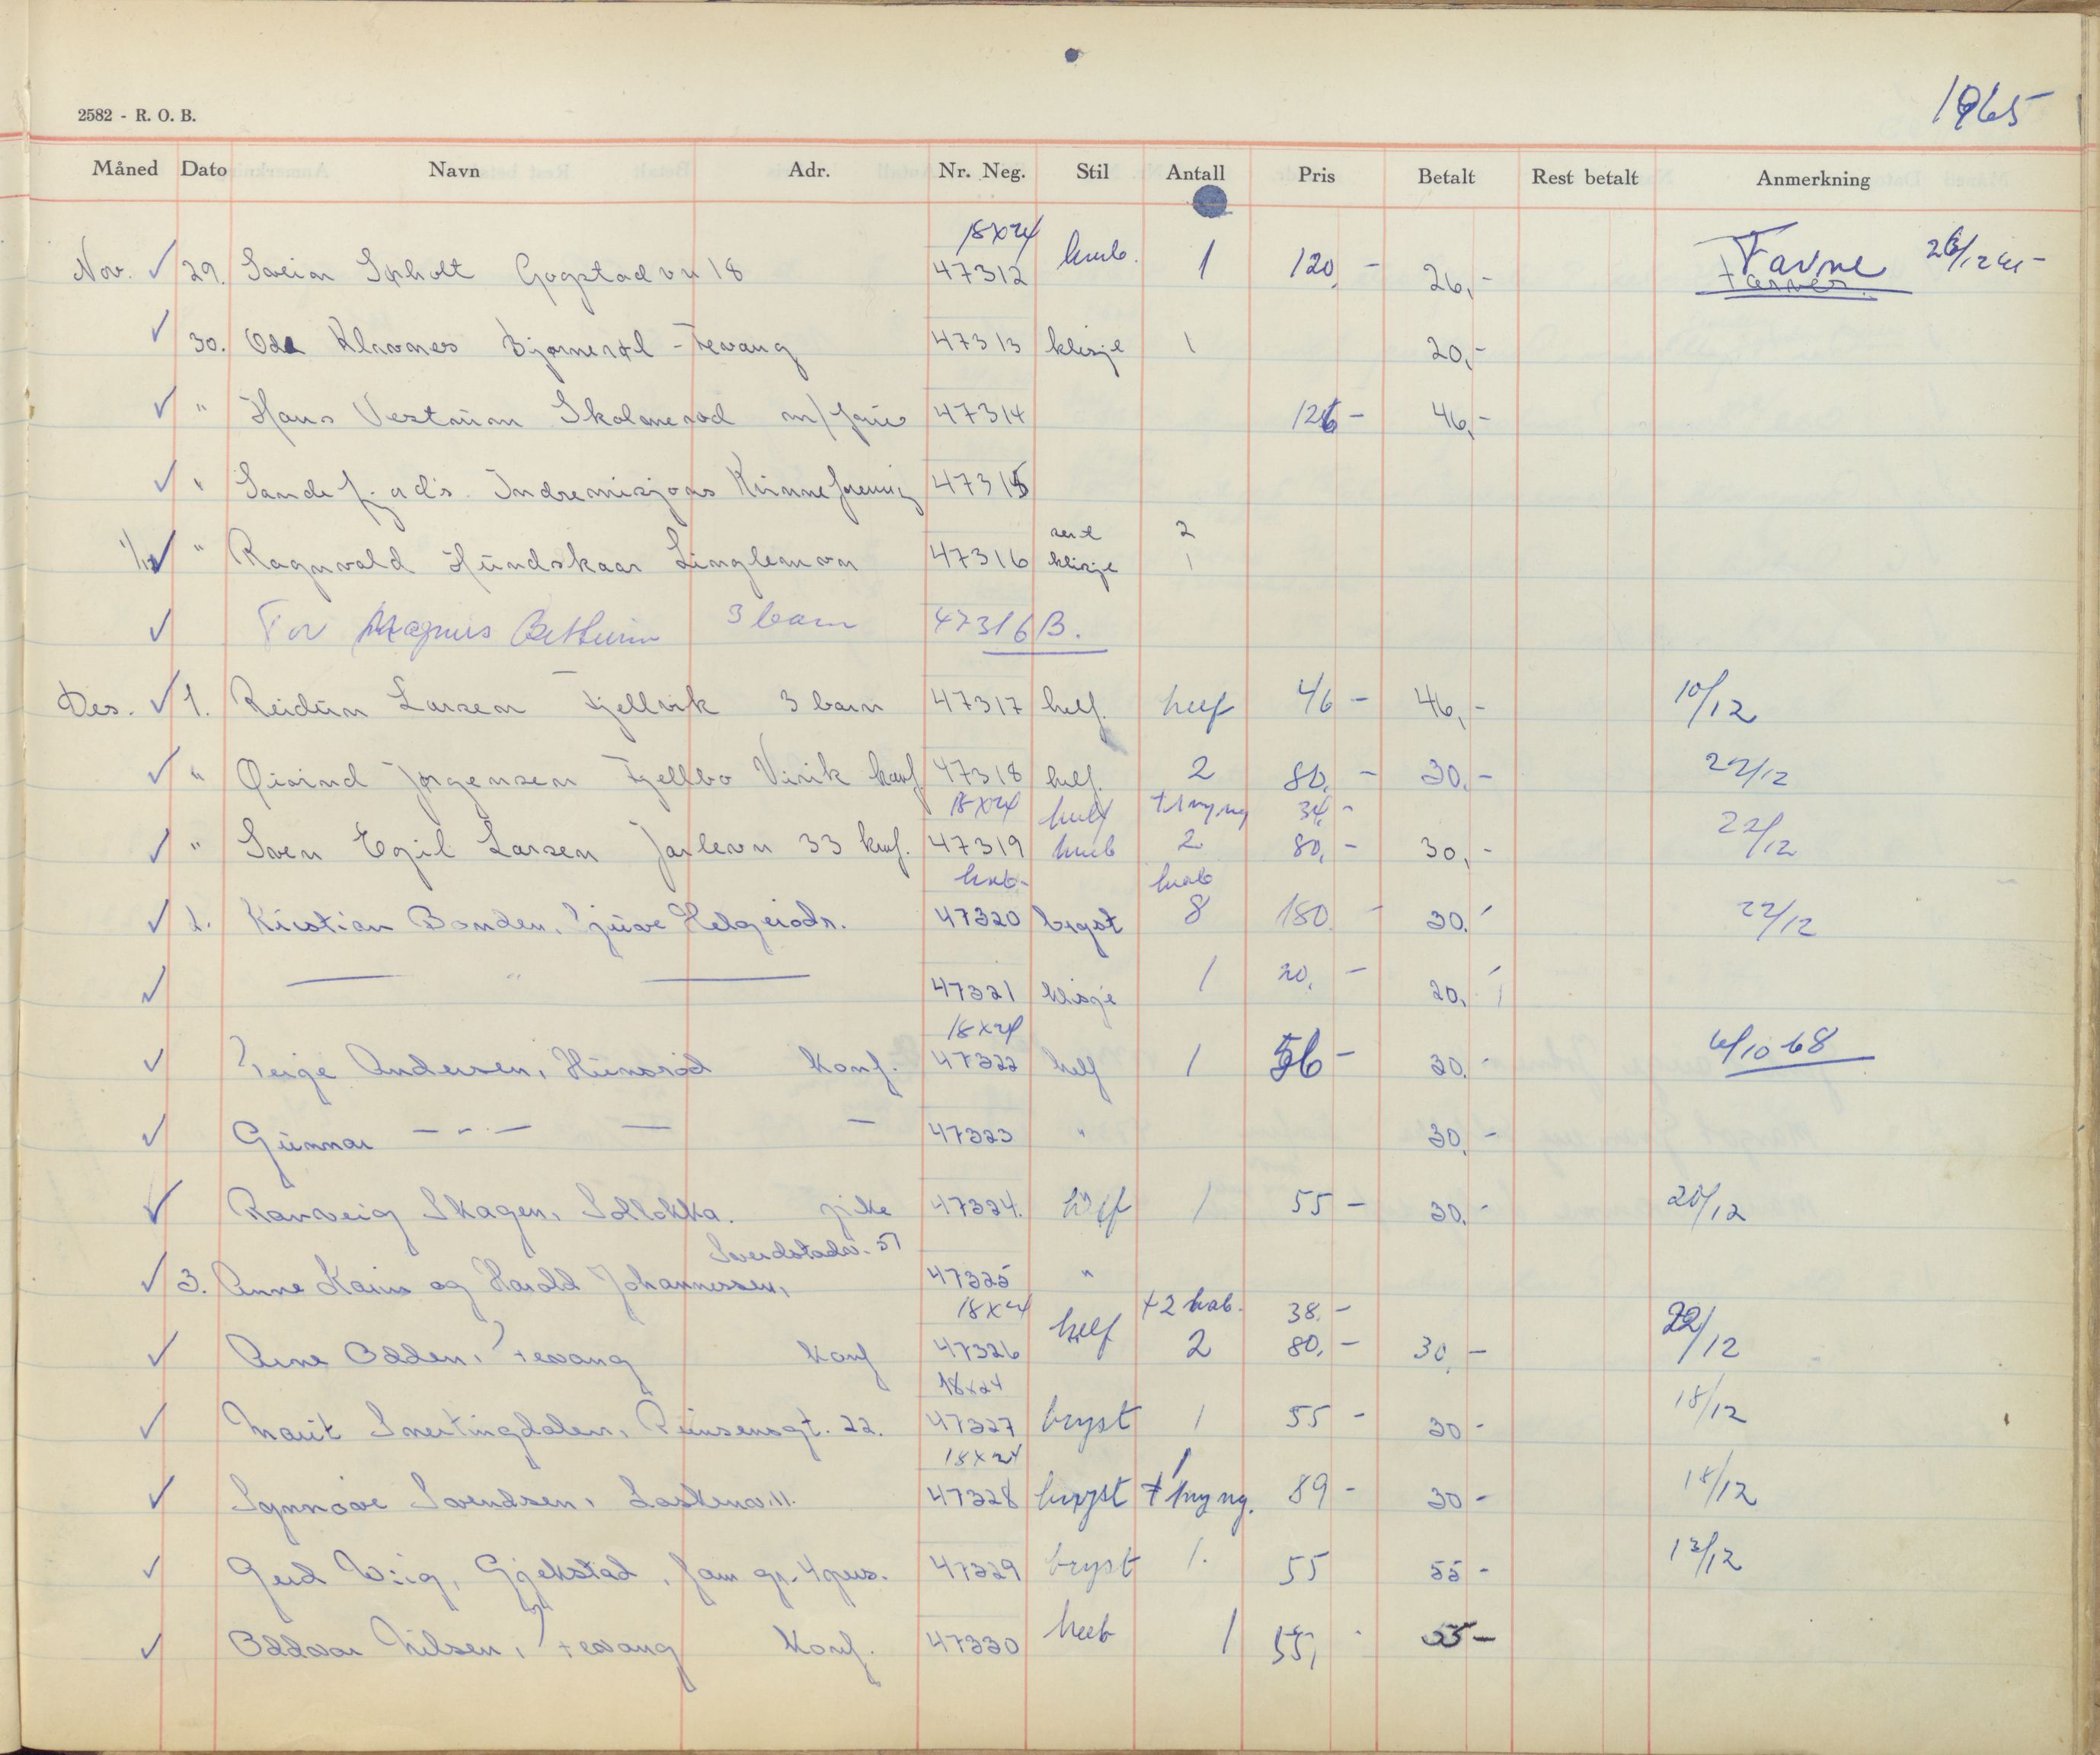 1965
2582 - R. O. B.
Måned Dato Navn Adr. Nr. Neg. Stil Antall Pris Betalt Rest betalt Anmerkning
18x24
Nov. ✓ 29. Svein Gogstad vn 18 47312 1 120,- 26,- Farve
✓ 30. Oda Klavnes - Fevang 47313 klisje 1 20,-
✓ " Hans Vestrum Skolmerød m/ 47314 126 - 46,-
✓ " Sandefj. ad's. Indremisjons Kvinneforening 47315
2
1/12 ✓ " Ragnvald Hundskaar Linglemvn 47316 klisje 1
✓ Tor Magnus 3 barn 47316 B.
Des. ✓ 1. Reidun Larsen Fjellvik 3 barn 47317 helf. helf 46 - 46,- 10/12
✓ " Øivind Jørgensen Fjellbo Virik konf 47318 helf. 2 80,- 30,- 22/12
18x24 + 1 ny ng 34,-
✓ " Sven Egil Larsen Jarlevn 33 konf. 47319 2 80,- 30,- 22/12
kab. kab
✓ 2. Kristian Bonden, 47320 bryst 8 180 - 30.- 22/12
✓ — " — 47321 klisje 1 20,- 20,-
18x24
✓ Terje Andersen, Hunsrød Konf. 47322 helf 1 56 - 30.- 4/10 68
✓ Gunnar — " — — — 47323 " 30,-
✓ Ranveig Skagen, Solløkka. pike 47324. helf 1 55 - 30.- 20/12
Sverdstadv. 51
✓ 3. Anne Karin og Harald Johannessen, 47325 "
18x24 + 2 kab. 38.-
✓ Arne Odden, Fevang Konf 47326 helf 2 80,- 30,- 22/12
18x24
✓ Marit Snertingdalen, Prinsensgt. 22. 47327 bryst 1 55 - 30 - 18/12
18x24 1
✓ Synnøve Svendsen, 11. 47328 bryst + 1 ny ng. 89 - 30 - 18/12
✓ Gerd Wiig, Gjekstad, fam gr. 4 pers. 47329 bryst 1. 55 55 - 13/12
✓ Oddvar Nilsen, Fevang Konf. 47330 1 55, 55 -